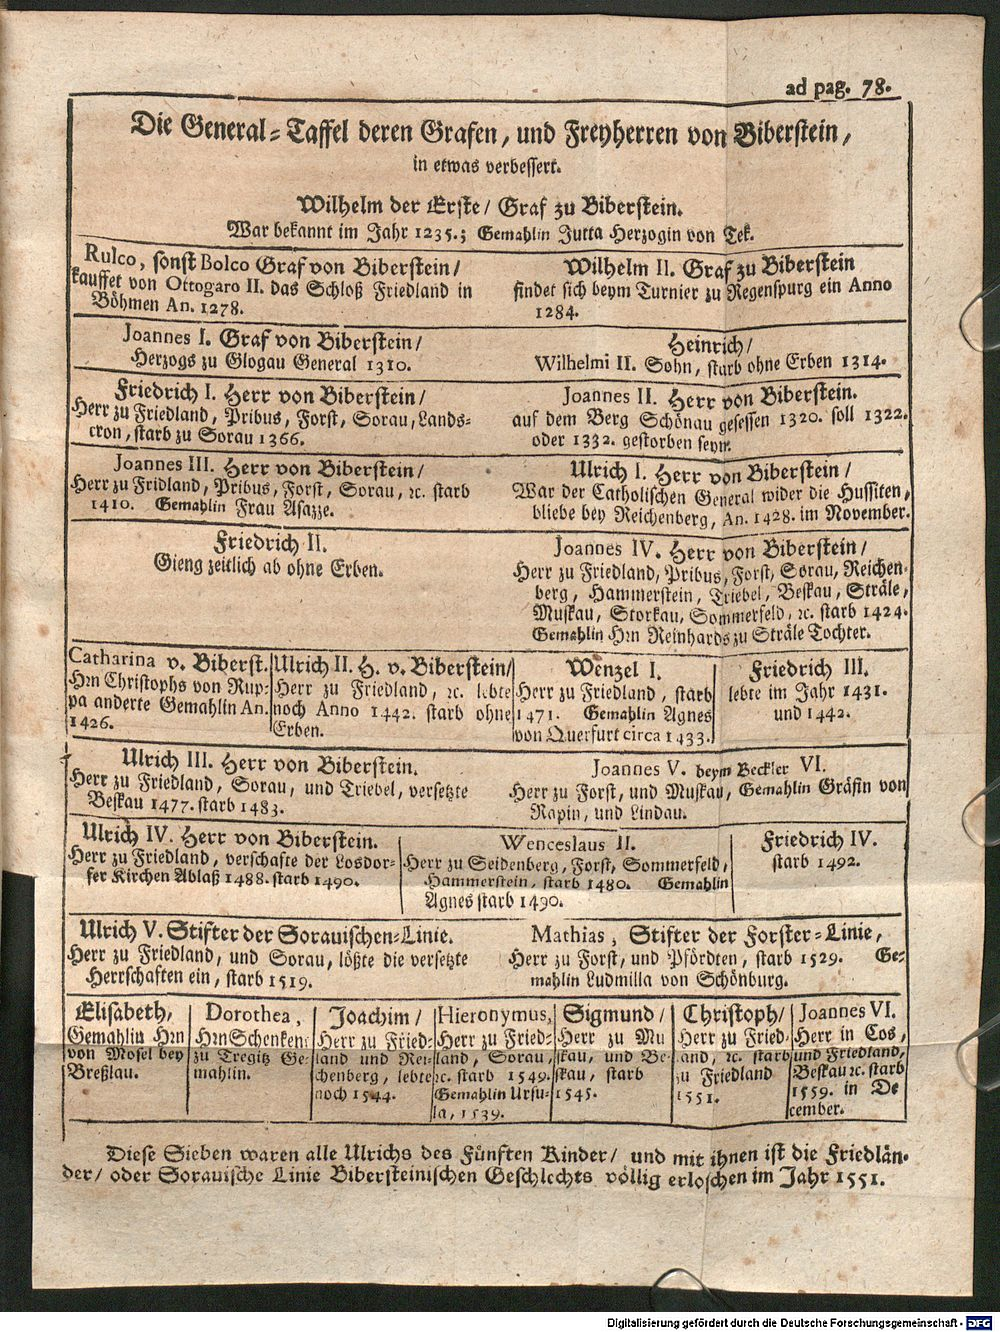 ad pag. 78.
Die General-Taffel deren Grafen, und Freyherren von Biberstein,
in etwas verbessert.
Wilhelm der Erste/ Graf zu Biberstein.
War bekannt im Jahr 1235.; Gemahlin Jutta Herzogin von Tek.
Rulco, sonst Bolco Graf von Biberstein/
kauffet von Ottogaro II. das Schloß Friedland in
Böhmen An. 1278.
Wilhelm II. Graf zu Biberstein
findet sich beym Turnier zu Regenspurg ein Anno
1284.
Joannes I. Graf von Biberstein/
Herzogs zu Glogau General 1310.
Heinrich/
Wilhelmi II. Sohn, starb ohne Erben 1314.
Friedrich I. Herr von Biberstein/
Herr zu Friedland, Pribus, Forst, Sorau, Lands-
cron, starb zu Sorau 1366.
Joannes II. Herr von Biberstein.
auf dem Berg Schönau gesessen 1320. soll 1322.
oder 1332. gestorben seyn.
Joannes III. Herr von Biberstein/
Herr zu Fridland, Pribus, Forst, Sorau, ꝛc. starb
1410. Gemahlin Frau Asazze.
Ulrich I. Herr von Biberstein/
War der Catholischen General wider die Hussiten,
bliebe bey Reichenberg, An. 1428. im November.
Friedrich II.
Gieng zeitlich ab ohne Erben.
Joannes IV. Herr von Biberstein/
Herr zu Friedland, Pribus, Forst, Sorau, Reichen-
berg, Hammerstein, Triebel, Beskau, Sträle,
Muskau, Storkau, Sommerfeld, ꝛc. starb 1424.
Gemahlin Hrn Reinhards zu Sträle Tochter.
Catharina v. Biberst.
Hrn Christophs von Rup-
pa anderte Gemahlin An.
1426.
Ulrich II. H. v. Biberstein/
Herr zu Friedland, ꝛc. lebte
noch Anno 1442. starb ohne
Erben.
Wenzel I.
Herr zu Friedland, starb
1471. Gemahlin Agnes
von Querfurt circa 1433.
Friedrich III.
lebte im Jahr 1431.
und 1442.
Ulrich III. Herr von Biberstein.
Herr zu Friedland, Sorau, und Triebel, versetzte
Beskau 1477. starb 1483.
Joannes V. beym Beckler VI.
Herr zu Forst, und Muskau, Gemahlin Gräfin von
Rapin, und Lindau.
Ulrich IV. Herr von Biberstein.
Herr zu Friedland, verschafte der Losdor-
fer Kirchen Ablaß 1488. starb 1490.
Wenceslaus II.
Herr zu Seidenberg, Forst, Sommerfeld,
Hammerstein, starb 1480. Gemahlin
Agnes starb 1490.
Friedrich IV.
starb 1492.
Ulrich V. Stifter der Sorauischen-Linie.
Herr zu Friedland, und Sorau, lößte die versetzte
Herrschaften ein, starb 1519.
Mathias, Stifter der Forster-Linie,
Herr zu Forst, und Pfördten, starb 1529. Ge-
mahlin Ludmilla von Schönburg.
Elisabeth,
Gemahlin Hrn
von Mosel bey
Breßlau.
Dorothea,
Hrn Schenken
zu Tregitz Ge-
mahlin.
Joachim/
Herr zu Fried-
land und Rei-
chenberg, lebte
noch 1544.
Hieronymus,
Herr zu Fried-
land, Sorau,
ꝛc. starb 1549.
Gemahlin Ursu-
la, 1539.
Sigmund/
Herr zu Mu
skau, und Be-
skau, starb
1545.
Christoph/
Herr zu Fried-
land, ꝛc. starb
zu Friedland
1551.
Joannes VI.
Herr in Cos,
und Friedland,
Beskau ꝛc. starb
1559. in De
cember.
Diese Sieben waren alle Ulrichs des Fünften Kinder/ und mit ihnen ist die Friedlän-
der/ oder Sorauische Linie Bibersteinischen Geschlechts völlig erloschen im Jahr 1551.
Digitalisierung gefördert durch die Deutsche Forschungsgemeinschaft - DFG